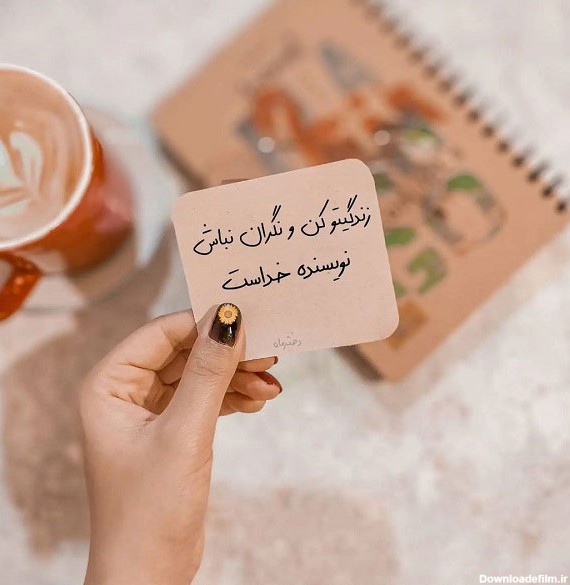 زندگیتو کن و نگران نباش
نویسنده خداست
دخترماه
Downloadefilm.ir